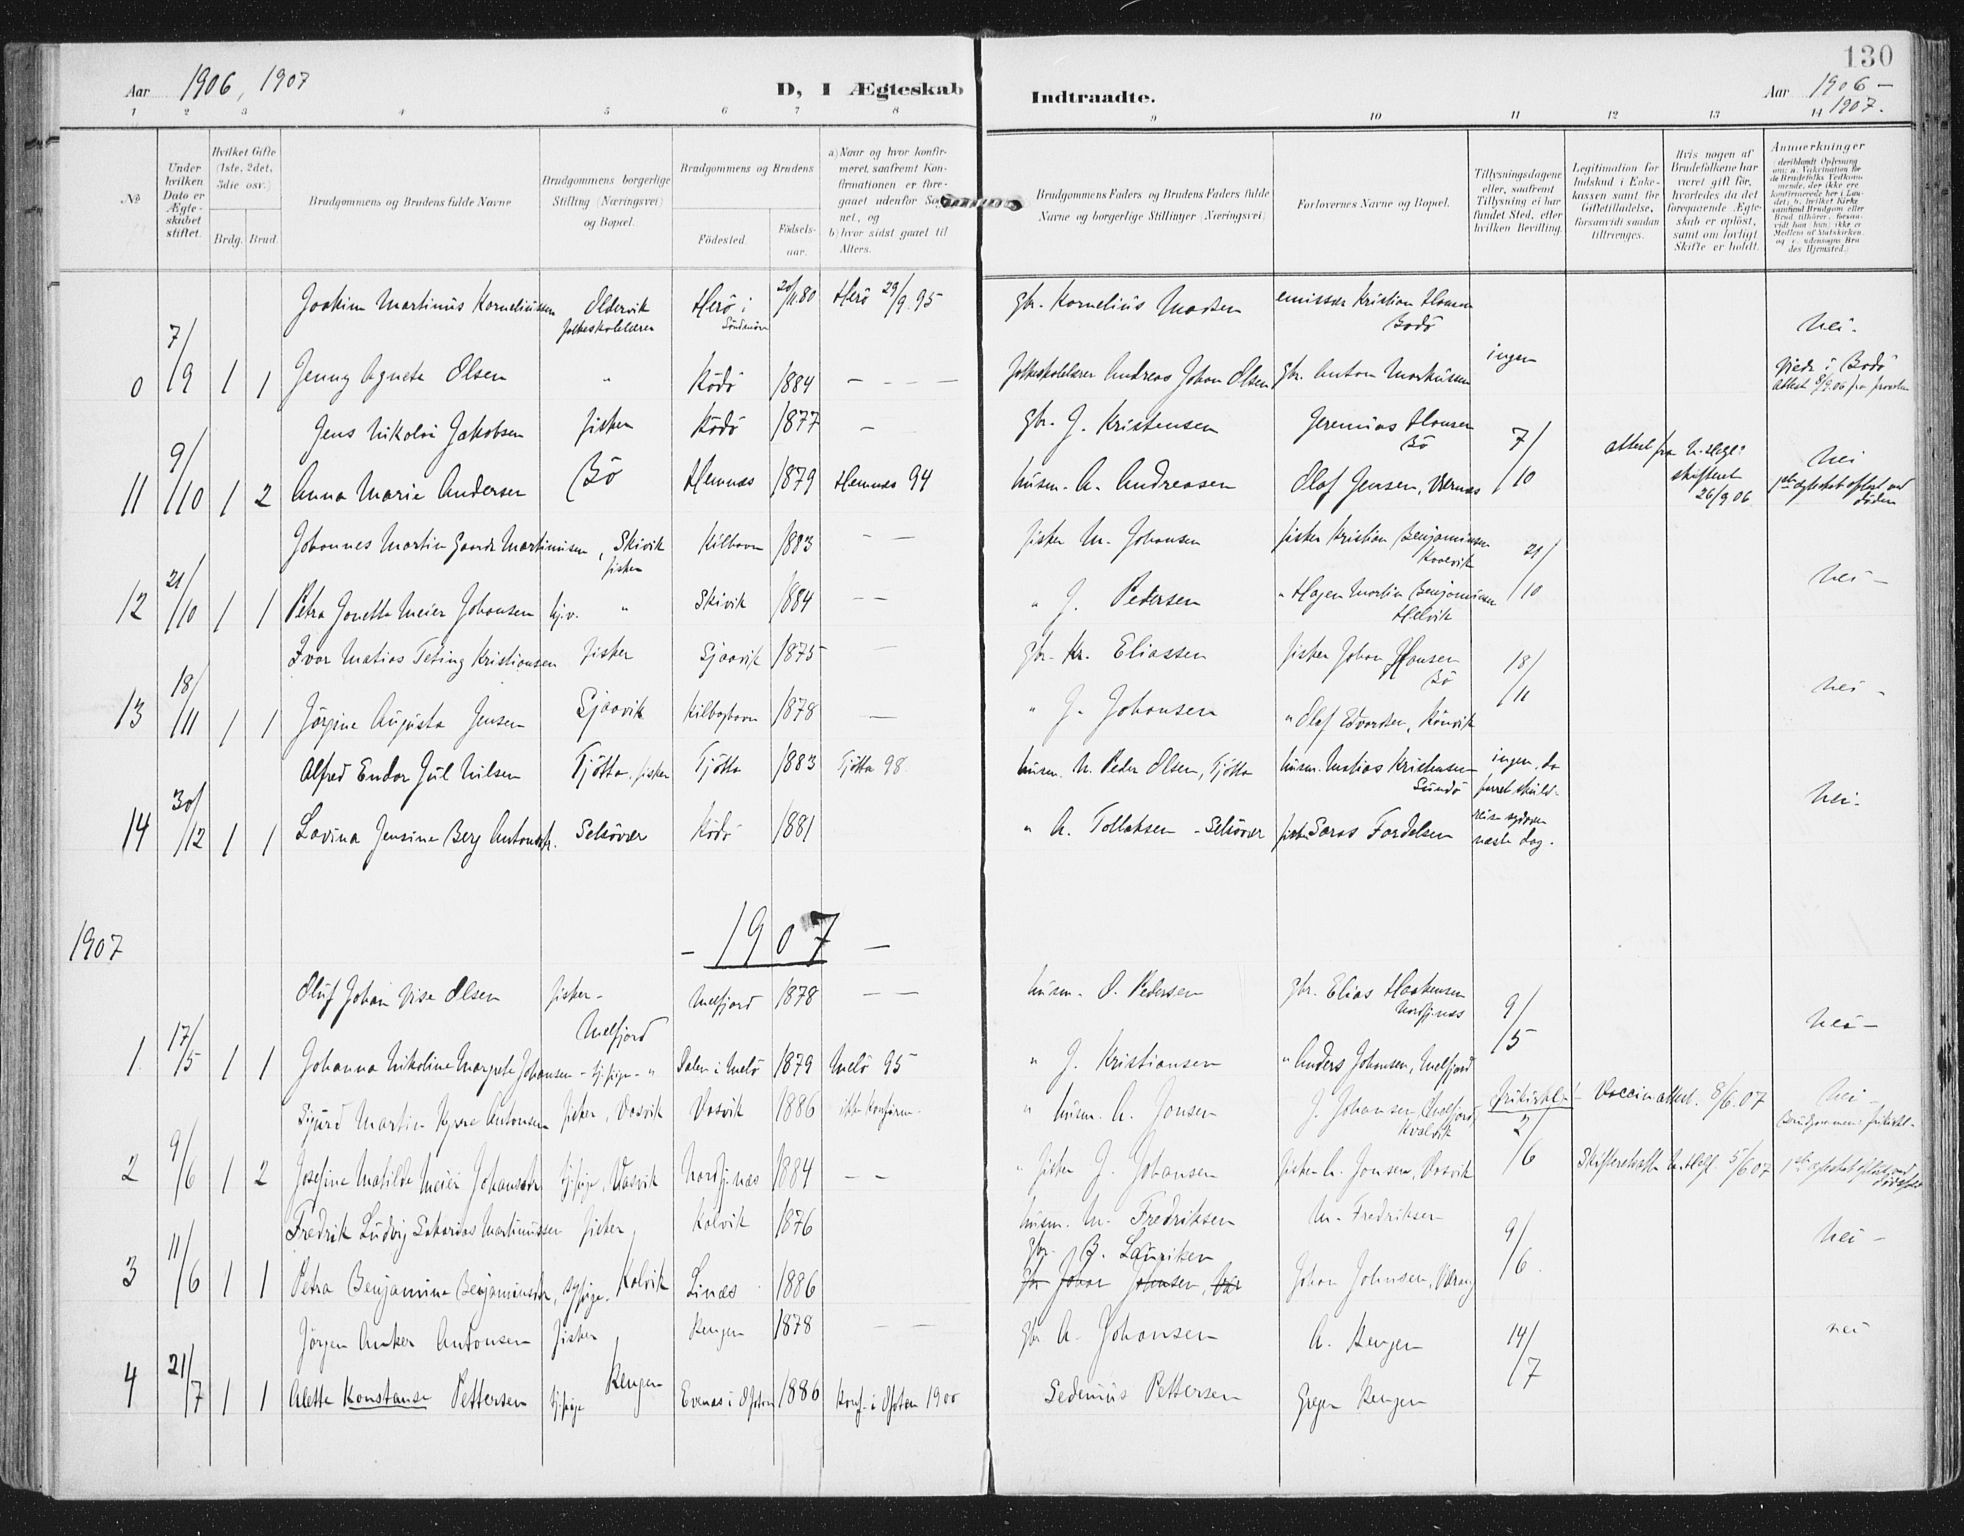 130
Aar 1906, 1907
D, I Ægteskab Indtraadte.
Aar 1906 – 1907.
1 2 3 4 5 6 7 8 9 10 11 12 13 14
№
Under hvilken Dato er Ægteskabet stiftet.
Hvilket Gifte (1ste, 2det, 3die osv.)
Brdg. Brud.
Brudgommens og Brudens fulde Navne
Brudgommens borgerlige Stilling (Næringsvei) og Bopæl.
Brudgommens og Brudens
Fødested. Fødsels-aar.
a) Naar og hvor konfirmeret, saafremt Konfirmationen er foregaaet udenfor Sognet, og
b) hvor sidst gaaet til Alters.
Brudgommens Faders og Brudens Faders fulde Navne og borgerlige Stillinger (Næringsvei)
Forlovernes Navne og Bopæl.
Tillysningsdagene eller, saafremt Tillysning ei har fundet Sted, efter hvilken Bevilling.
Legitimation for Indskud i Enkekassen samt for Giftetilladelse, forsaavidt saadan tiltrænges.
Hvis nogen af Brudefolkene har været gift før, hvorledes da det foregaaende Ægteskab er opløst, samt om lovligt Skifte er holdt.
Anmærkninger
Joakim Martinus Korneliussen Oldervik folkeskolelærer Herö i Söndmöre 20/11 80 Herö 29/9. 95 gbr. Kornelius Madsen emissær Kristian Hansen Bodö nei.
0 7/9 1 1 Jenny Agnete Olsen " Rödö 1884 – – – – folkeskolelærer Andreas Johan Olsen gbr. Anton Markussen ingen Viede i Bodö attest 8/9.06 fra provsten
Jens Nikolai Jakobsen fisker Rödö 1877 – gbr. J. Kristensen Jeremias Hansen Bö
11 9/10 1 2 Anna Marie Andersen Bö Hemnæs 1879 Hemnæs 94 husm. A. Andreasen Olaf Jensen, Værnæs 7/10 attest fra N. Helgl: skifteret 26/9 06 nei 1ste ægteskab opløst ved døden
Johannes Martin Martinusen, Skivik fisker Kilhavn 1883 – – fisker M. Johansen fisker Kristian Benjaminsen Kvalvik
12 21/10 1 1 Petra Jonetta Meier Johansen tj.v. " Skivik 1884 – – " J. Pedersen " Hagen Martin Benjaminsen Helvik 21/10 nei –
Ivar Matias Teting Kristiansen fisker Sjaavik 1875 – gbr. Kr. Eliassen fisker Johan Hansen Bö
13 18/11 1 1 Jörgine Augusta Jensen Sjaavik Kilboghavn 1878 – " J. Johansen " Olaf Edvardsen, Rönvik 18/11 nei –
Alfred Endor Jul Nilsen Tjötta, fisker Tjötta 1883 Tjötta 98. husm. N. Peder Olsen, Tjötta husm. Matias Kristensen Sundö ingen, da
14 30/12 1 1 Lovina Jensine Berg Antonsdtr. Selsövær Rödö 1881 " A. Tollaksen – Selsövær fisker Fordelsen næste dag. nei.
1907
– 1907 –
Oluf Johan Vise Olsen fisker – Melfjord 1878 – – husm. O. Pedersen gbr. Elias Haakensen Nordfj.næs
1. 17/5 1 1 Johanna Nikoline Margrete Johansen – tj.pige – " Melfjord Dalen i Melö 1879 Melö 95 " J. Kristiansen " Anders Johansen, Melfjord 9/5 nei –
Sigurd Martin Kyrre Antonsen fisker, Vasvik Vasvik 1886 ikke konfirm. " husm. A. Jonsen J. Johansen, Melfjord, Kvalvik Vaccinattest. 8/6.07 nei – Brudgommen frikirkl.
2 9/6 1 2 Josefine Matilde Meier Johansdtr tj.pige, Vasvik Nordfj.næs 1884 – – " fisker J. Johansen fisker A. Jonsen, Vasvik 2/6 Skifteretsatt. N. Helg. 5/6.07 1ste ægteskab opløst ved
Fredrik Ludvig Sakarias Martinussen fisker, Kalvik 1876 husm. M. Fredriksen M. Fredriksen
3 11/6 1 1 Petra Benjamine Benjaminsdtr, sypige. Kalvik Linæs 1886 gbr. B. Lauriksen gbr Johan Johansen, Johan Johnsen, 9/6. nei –
Jörgen Anker Antonsen fisker, Rengen 1878 – – gbr A. Johansen A. Rengen nei
4 21/7 1 1 Alette Konstanse Pettersen tj.pige Rengen Evenæs i Ofoten 1886 konf. i Ofoten 1900 Sedenius Pettersen Rengen 14/7